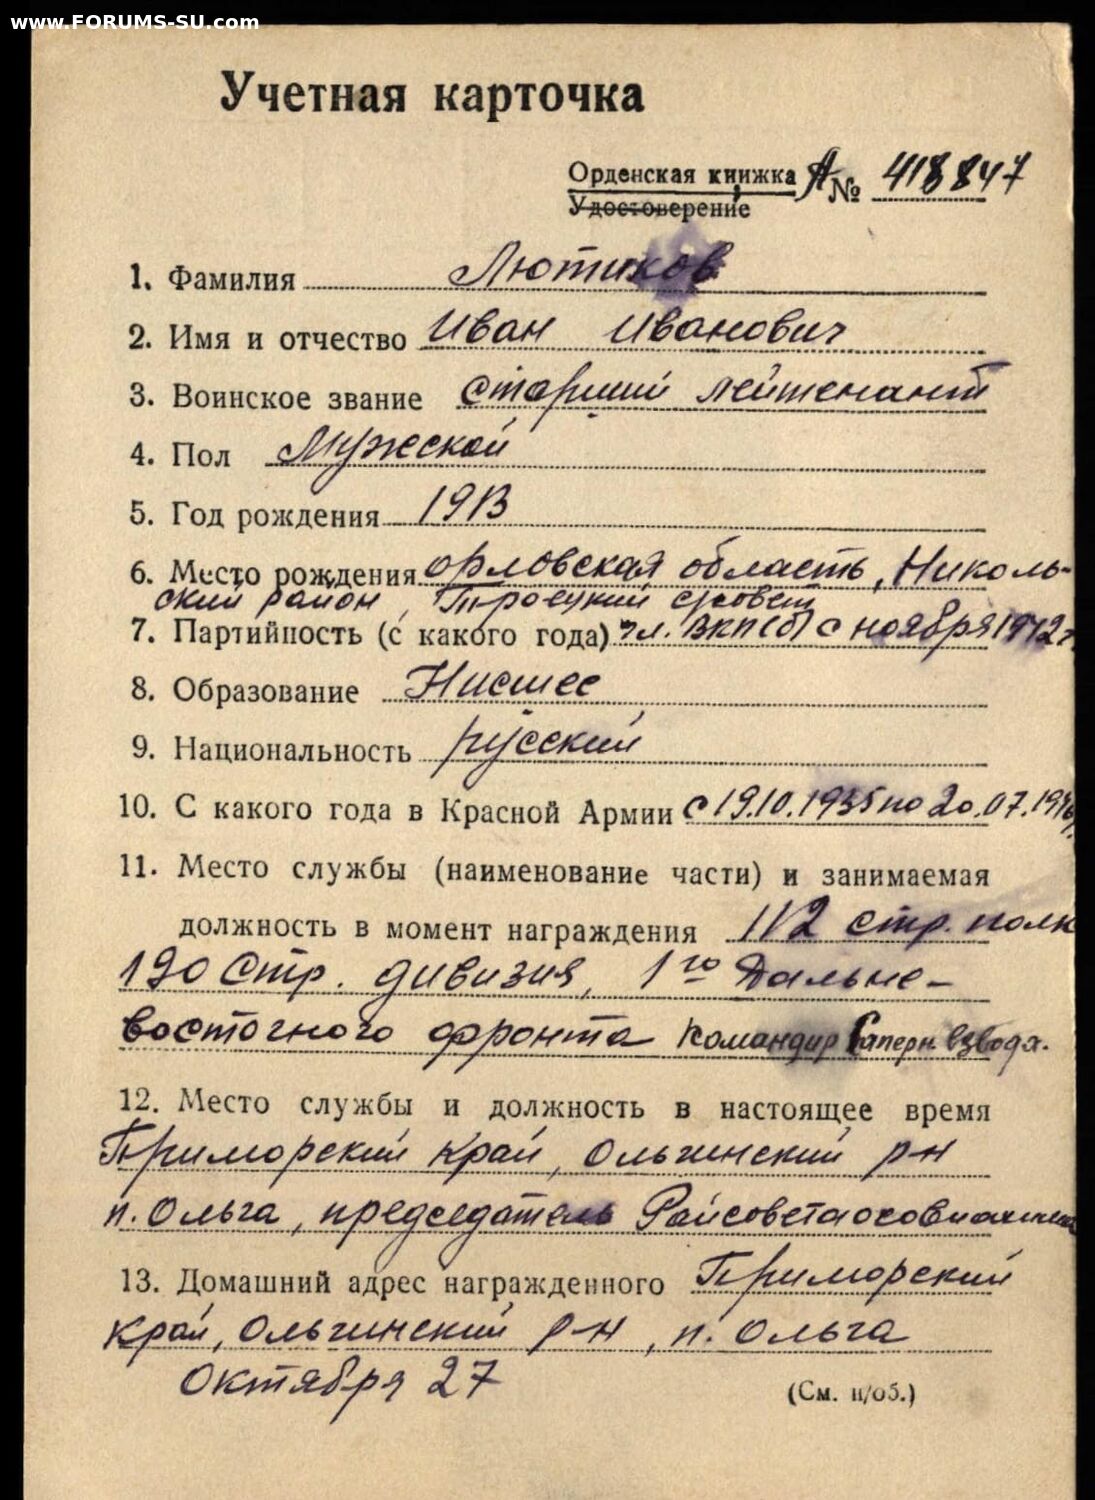 www.FORUMS-SU.com
Учетная карточка
Орденская книжка А № 418847
Удостоверение
1. Фамилия Лютиков
2. Имя и отчество Иван Иванович
3. Воинское звание старший лейтенант
4. Пол Мужской
5. Год рождения 1913
6. Место рождения орловская область, Николь-
ский район, Троецкий с/совет
7. Партийность (с какого года) чл. ВКП(б) с ноября 1942 г
8. Образование Нисшее
9. Национальность русский
10. С какого года в Красной Армии с 19.10.1935 по 20.07.1946 г.
11. Место службы (наименование части) и занимаемая
должность в момент награждения 112 стр. полк
190 Стр. дивизия, 1го Дальне-
восточного фронта Командир Саперн. взвода.
12. Место службы и должность в настоящее время
Приморский край, Ольгинский р-н
п. Ольга, председатель Райсовета осовиахима
13. Домашний адрес награжденного Приморский
край, Ольгинский р-н, п. Ольга
Октября 27
(См. н/об.)